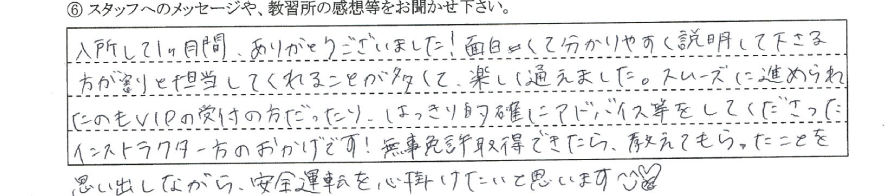 ⑥ スタッフへのメッセージや、教習所の感想等をお聞かせ下さい。
入所して1ヶ月間、ありがとうございました！面白くて分かりやすく説明して下さる
方が割りと担当してくれることが多くて、楽しく通えました。スムーズに進められ
たのもVIPの受付の方だったり、はっきり的確にアドバイス等をしてくださった
インストラクター方のおかげです！無事免許取得できたら、教えてもらったことを
思い出しながら、安全運転を心掛けたいと思います